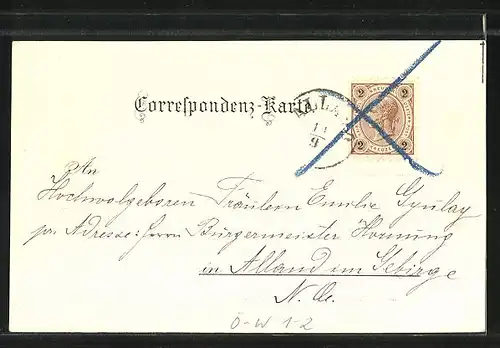 Correspondenz-Karte
2 2
2 2
14
9
An
Hochwolgeboren Fräulein Emilie Gyulay
per Adresse: Herrn Bürgermeister Hornung
in Alland im Gebirge
N. Oe.
Ö-W 1-2